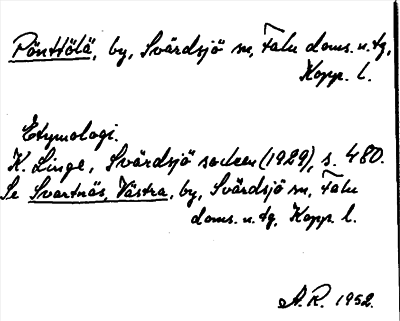 Pönttölä, by, Svärdsjö sn, Falu doms. n. tg,
Kopp. l.
Etymologi.
K. Linge, Svärdsjö socken (1929), s. 480.
Se Svartnäs, Västra, by, Svärdsjö sn, Falu
doms. n. tg, Kopp. l.
A.R. 1952.